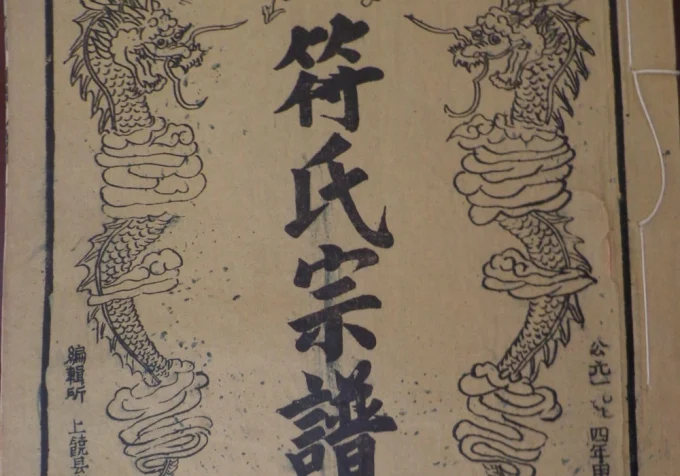 公元一九九四年
符氏宗譜
編輯所 上饒县